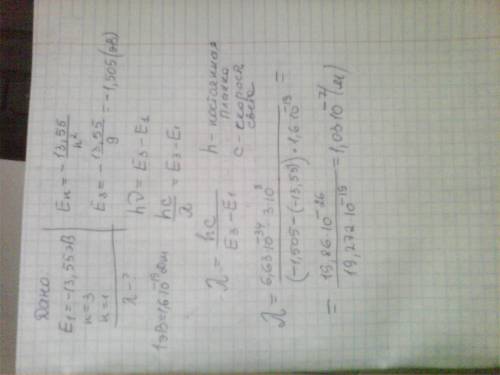 Дано
E₁ = -13,55 эВ
n = 3
n = 1
λ - ?
1 эВ = 1,6·10⁻¹⁹ Дж
Eₙ = - 13,55 / n²
E₃ = - 13,55 / 9 = -1,505 (эВ)
hν = E₃ - E₁
hc / λ = E₃ - E₁
λ = hc / (E₃ - E₁)
h - постоянная
Планка
c - скорость
света
λ = 6,63·10⁻³⁴ · 3·10⁸ / (-1,505 - (-13,55)) · 1,6·10⁻¹⁹ =
= 19,86·10⁻²⁶ / 19,272·10⁻¹⁹ = 1,03·10⁻⁷ (м)